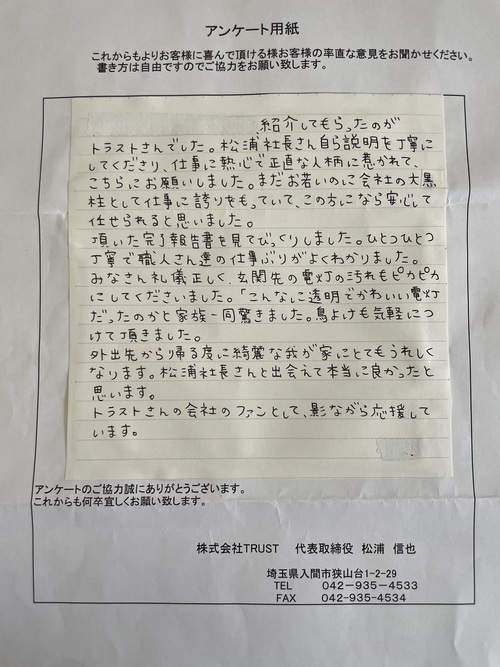 アンケート用紙
これからもよりお客様に喜んで頂ける様お客様の率直な意見をお聞かせください。
書き方は自由ですのでご協力をお願い致します。
紹介してもらったのが
トラストさんでした。松浦社長さん自ら説明を丁寧に
してくださり、仕事に熱心で正直な人柄に惹かれて、
こちらにお願いしました。まだお若いのに会社の大黒
柱として仕事に誇りをもっていて、この方になら安心して
任せられると思いました。
頂いた完了報告書を見てびっくりしました。ひとつひとつ
丁寧で職人さん達の仕事ぶりがよくわかりました。
みなさん礼儀正しく、玄関先の電灯の汚れもピカピカ
にしてくださいました。「こんなに透明でかわいい電灯
だったのかと家族一同驚きました。鳥よけも気軽につ
けて頂きました。
外出先から帰る度に綺麗な我が家にとてもうれしく
なります。松浦社長さんと出会えて本当に良かったと
思います。
トラストさんの会社のファンとして、影ながら応援して
います。
アンケートのご協力誠にありがとうございます。
これからも何卒宜しくお願い致します。
株式会社TRUST 代表取締役 松浦 信也
埼玉県入間市狭山台1-2-29
TEL 042-935-4533
FAX 042-935-4534